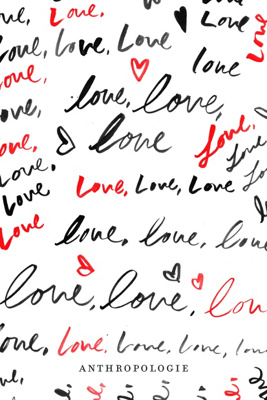 Love
Love, Love, Love
Love, love
love, love,
love, love
love, Love,
Love, Love
Love, Love, Love
Love
love, love, love
love, love, love
Love, Love, love, love
ANTHROPOLOGIE